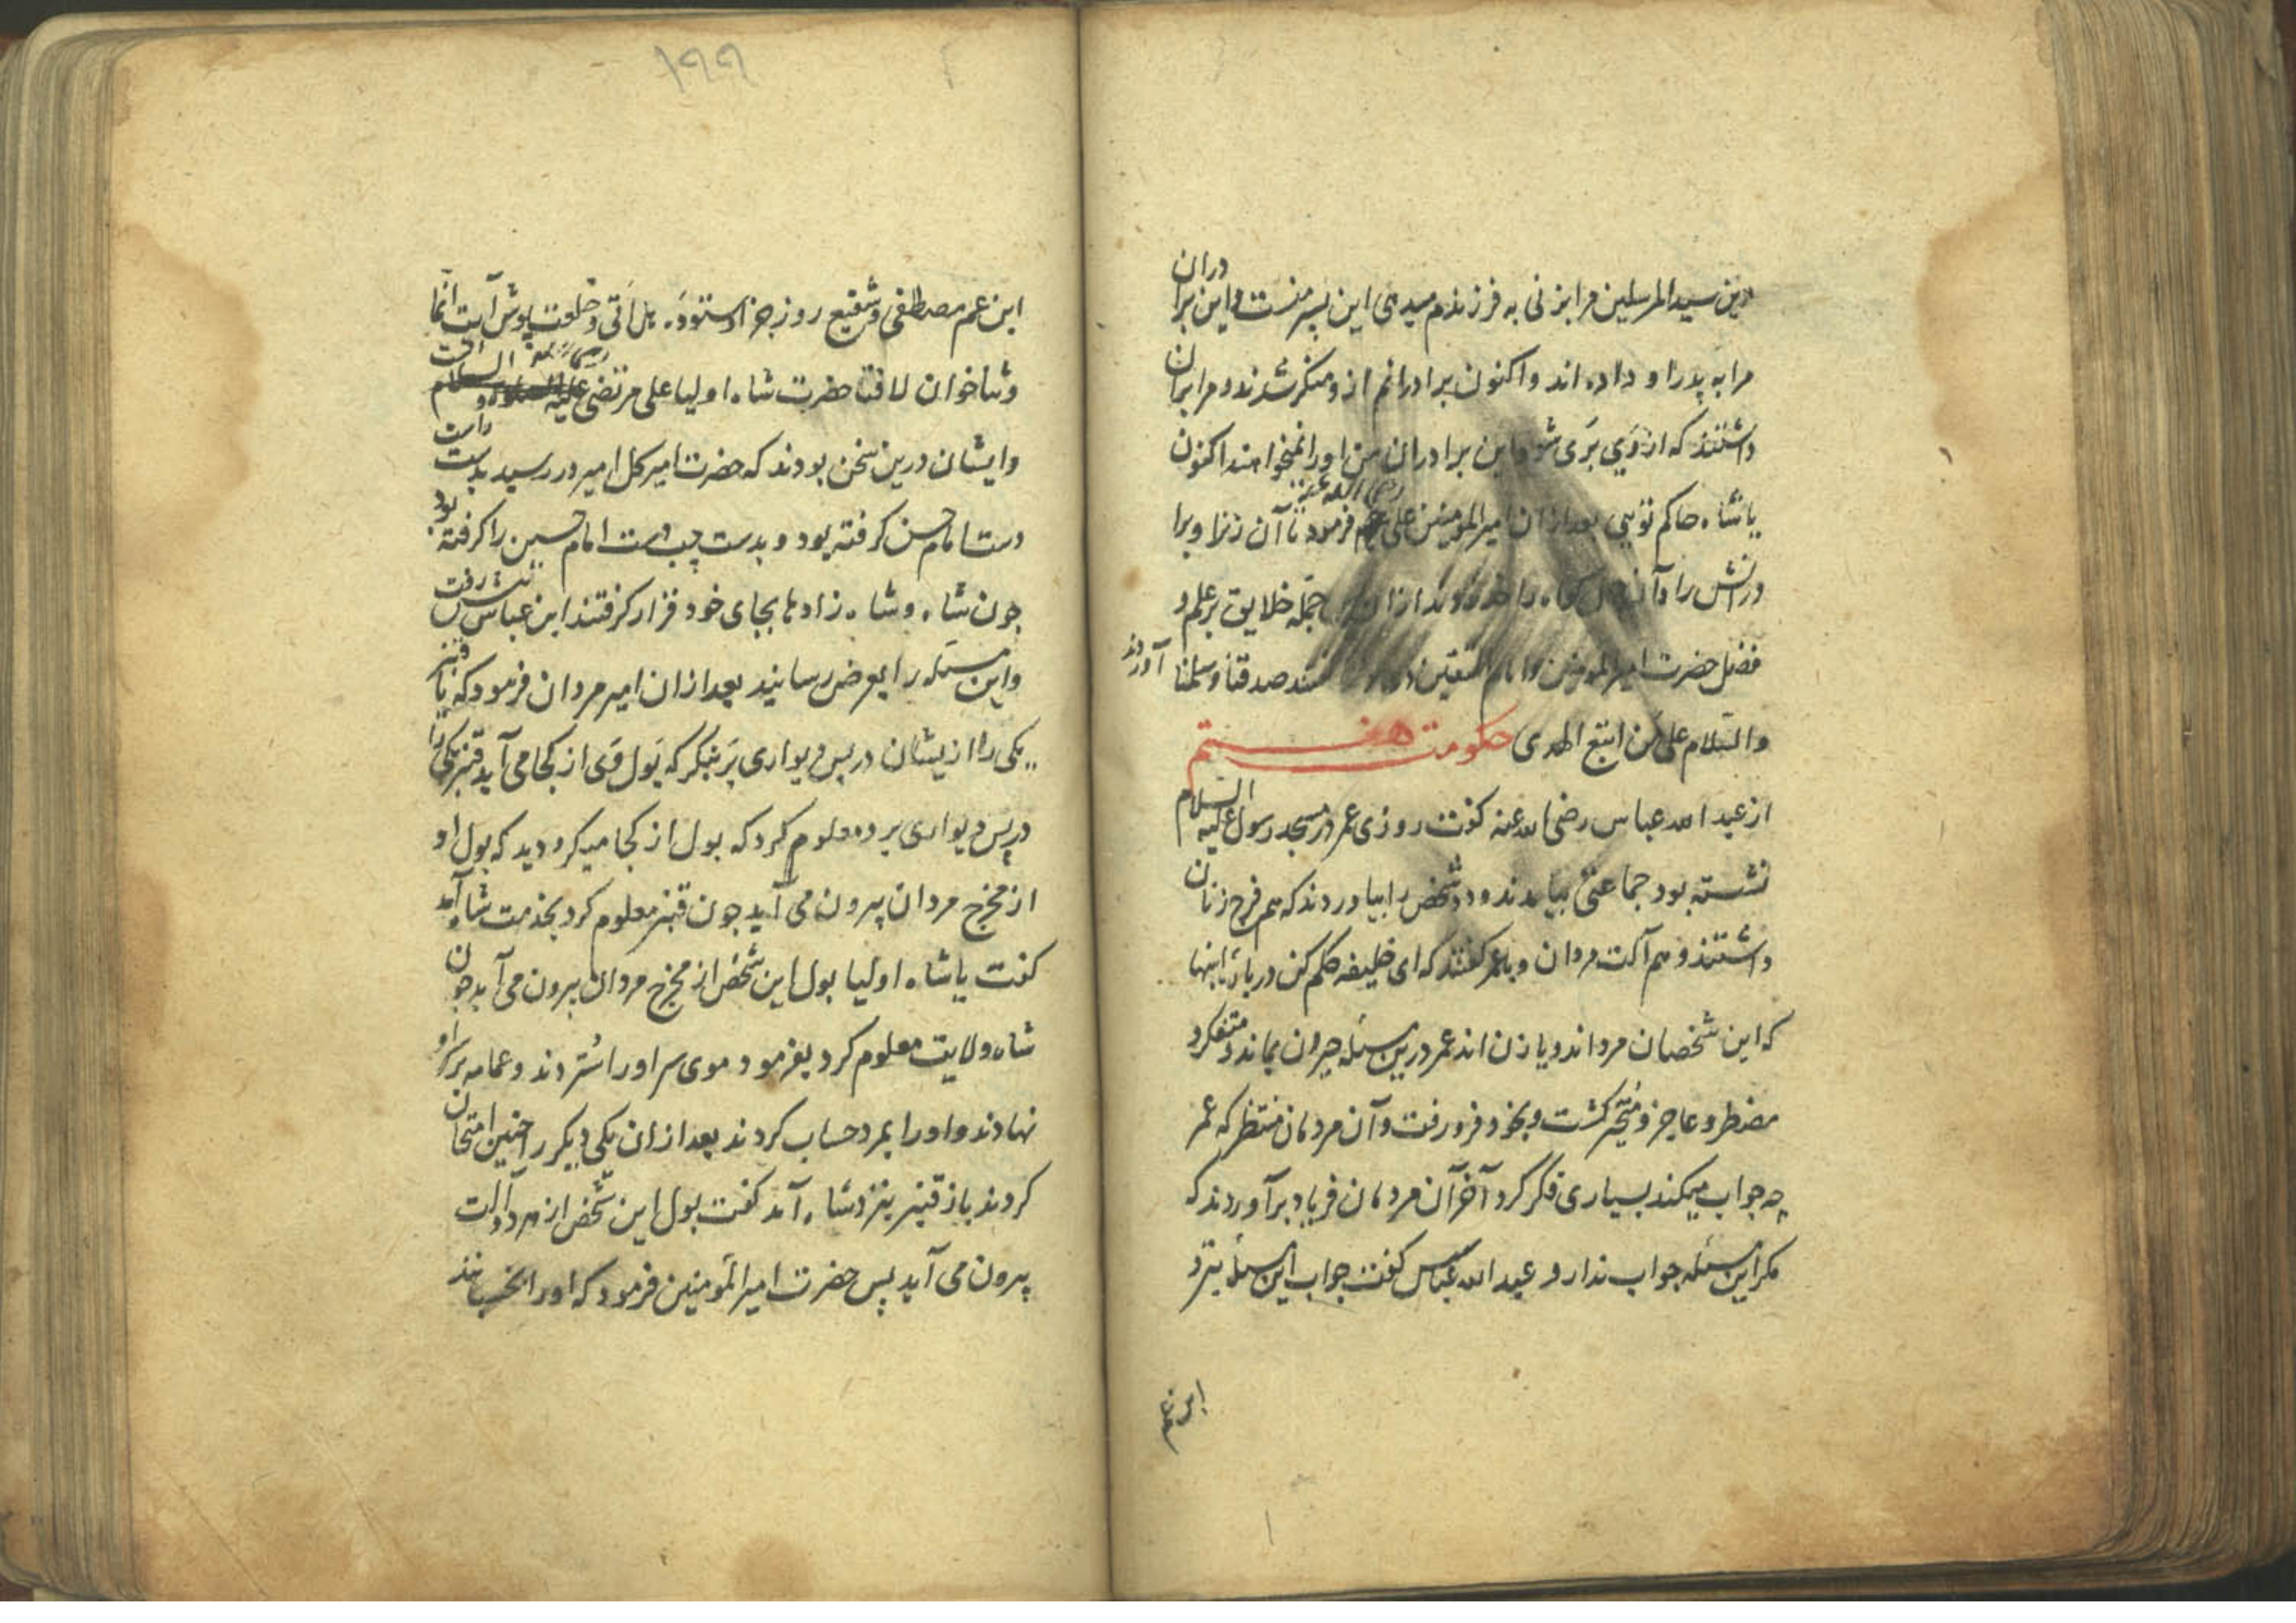 دین سیدالمرسلین مرا بزنی به فرزندم میدهی این پسر منست و این برادران
مرا به پدر او داده اند و اکنون برادرانم ازو منکر شدند و مرا بران
داشتند که از وی بَری شو و این برادران من او را نمیخواهند اکنون
یا شاه حاکم تویی بعد ازان امیرالمومنین علی رضی الله عنه فرمود تا آن زنرا و برا
درانش را و آن را بعد ازان جمله خلایق بر علم و
فضل حضرت امیرالمومنین و امام المتقین صدقنا و سلمنا آوردند
والسّلام علی من اتبع الهدی حکومت هفتم
از عبد الله عباس رضی الله عنه گفت روزی عمر در مسجد رسول علیه السّلام
نشسته بود جماعتی بیامدند و دو شخص را بیاوردند که هم فرج زنان
داشتند و هم آلت مردان و با عمر گفتند که ای خلیفه حکم کن در باره اینها
که این شخصان مرد اند و یا زن اند عمر درین مسئله حیران بماند و متفکر و
مضطر و عاجز و متحیّر گشت و بخود فرو رفت و آن مردمان منتظر که عمر
چه جواب میکند بسیاری فکر کرد آخر آن مردمان فریاد برآوردند که
مکر این مسئله جواب ندارد عبد الله عباس گفت جواب این مسئله بنزد
ابن عم
۱۹۹
ابن عم مصطفی و شفیع روز جزا ستودهٔ هل اَتی و خلعت پوش آیت انّما
و ثناخوان لا فتا حضرت شاه اولیا علی مرتضی است
و ایشان درین سخن بودند که حضرت امیر کل امیر در رسید بدست راست
دست امام حسن گرفته بود و بدست چپ دست امام حسین را گرفته بود
چون شاه و شاه زادها بجای خود قرار گرفتند ابن عباس پیش رفت
و این مسئله را بعرض رسانید بعد ازان امیر مردان فرمود که یا قنبر
یکی را ازیشان در پس دیواری بَر بنکر که بَول وَی از کجا می آید قنبر یکی را
در پس دیواری برد و معلوم کرد که بول از کجا میکرد دید که بول او
از مخرج مردان بیرون می آید چون قنبر معلوم کرد بخدمت شاه آمد و
گفت یا شاه اولیا بول این شخص از مخرج مردان بیرون می آید چون
شاه ولایت معلوم کرد بفرمود موی سر او را ستردند و عمامه بر سر او
نهادند و او را بمرد حساب کردند بعد ازان یکی دیگر را چنین امتحان
کردند باز قنبر بنزد شاه آمد گفت بول این شخص از هر دو آلت
بیرون می آید پس حضرت امیرالمومنین فرمود که او را بخسبانند